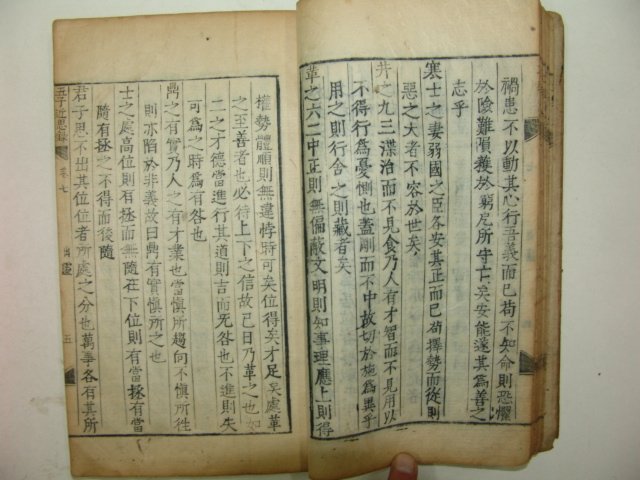 禍患不以動其心行吾義而已苟不知命則恐懼
於險難隕穫於窮戹所守亡矣安能遂其為善之
志乎
寒士之妻弱國之臣各安其正而已苟擇勢而從則
惡之大者不容於世矣
井之九三渫治而不見食乃人有才智而不見用以
不得行為憂惻也蓋剛而不中故切於施為異乎
用之則行舍之則藏者矣
革之六二中正則無偏蔽文明則知事理應上則得
權勢體順則無違悖時可矣位得矣才足矣處革
之至善者也必待上下之信故已日乃革之也如
二之才德當進行其道則吉而无咎也不進則失
可為之時為有咎也
鼎之有實乃人之有才業也當慎所趨向不慎所往
則亦陷於非義故曰鼎有實慎所之也
士之處高位則有拯而無隨在下位則有當拯有當
隨有拯之不得而後隨
君子思不出其位位者所處之分也萬事各有其所
五子近思錄
卷七
出處
五